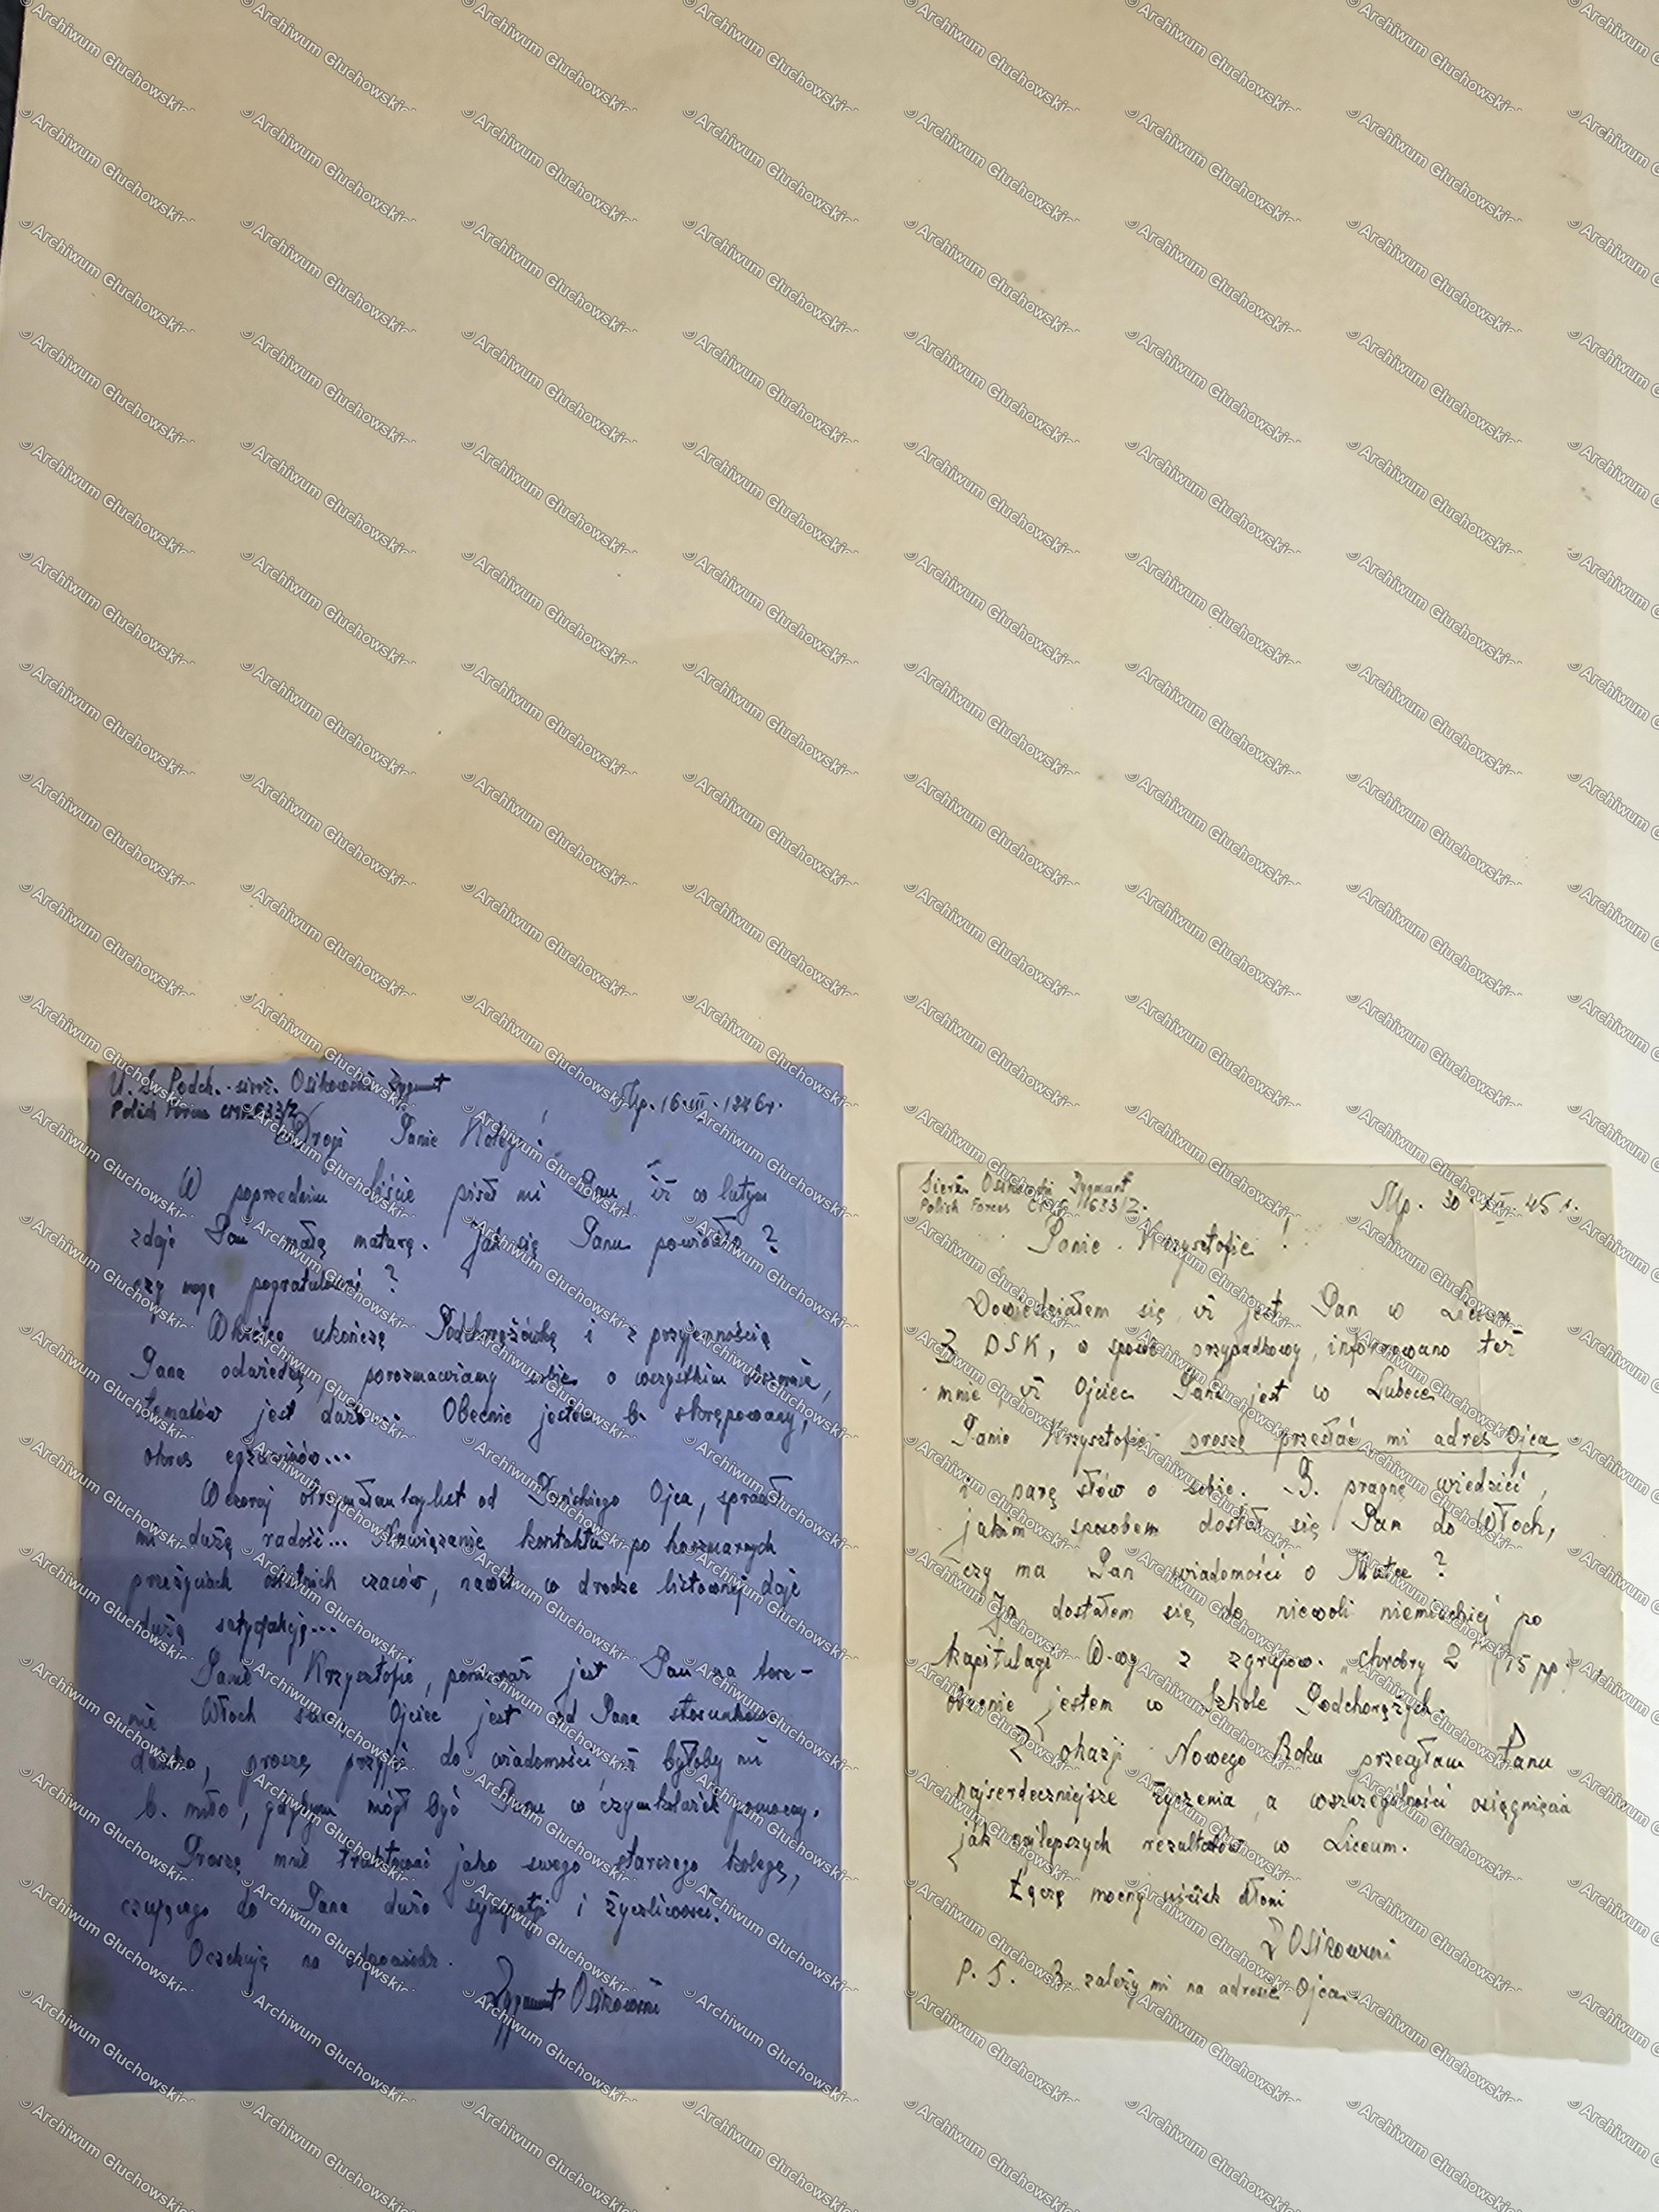 U. S. Podch. sierż. Osikowski Zygmunt
Polish Forces CMF 633/Z
Mp. 16.III.1946r.
Drogi Panie Kolego!
W poprzednim liście pisał mi Pan, iż w lutym
zdaje Pan małą maturę. Jak się Panu powiodło?
czy mogę pogratulować?
Wkrótce ukończę Podchorążówkę i z przyjemnością
Pana odwiedzę, porozmawiamy sobie o wszystkim obszernie,
tematów jest dużo... Obecnie jestem b. skrępowany,
okres egzaminów...
Wczoraj otrzymałem list od Pańskiego Ojca, sprawił
mi dużą radość... Nawiązanie kontaktu po koszmarnych
przeżyciach ostatnich czasów, nawet w drodze listownej daje
dużą satysfakcję...
Panie Krzysztofie, ponieważ jest Pan na tere-
nie Włoch sam Ojciec jest od Pana stosunkowo
daleko, proszę przyjąć do wiadomości iż byłoby mi
b. miło, gdybym mógł być Panu w czymkolwiek pomocny.
Proszę mnie traktować jako swego starszego kolegę,
czującego do Pana dużo sympatji i życzliwości.
Oczekuję na odpowiedź.
Zygmunt Osikowski
Sierż. Osikowski Zygmunt
Polish Forces CMF 633/Z.
Mp. 30 XII. 45 r.
Panie Krzysztofie!
Dowiedziałem się iż jest Pan w Liceum
3 DSK, w sposób przypadkowy, informowano też
mnie iż Ojciec Pana jest w Lubece
Panie Krzysztofie proszę przesłać mi adres Ojca
i parę słów o sobie. B. pragnę wiedzieć,
jakim sposobem dostał się Pan do Włoch,
czy ma Pan wiadomości o Matce?
Ja dostałem się do niewoli niemieckiej po
kapitulacji W-wy z zgrupow. "Chrobry 2" (15 pp)
obecnie jestem w Szkole Podchorążych.
Z okazji Nowego Roku przesyłam Panu
najserdeczniejsze życzenia, a wszczególności osiągnięcia
jak najlepszych rezultatów w Liceum.
Łączę mocny uścisk dłoni
Z Osikowski
P. S. B. zależy mi na adresie Ojca.
© Archiwum Głuchowskich